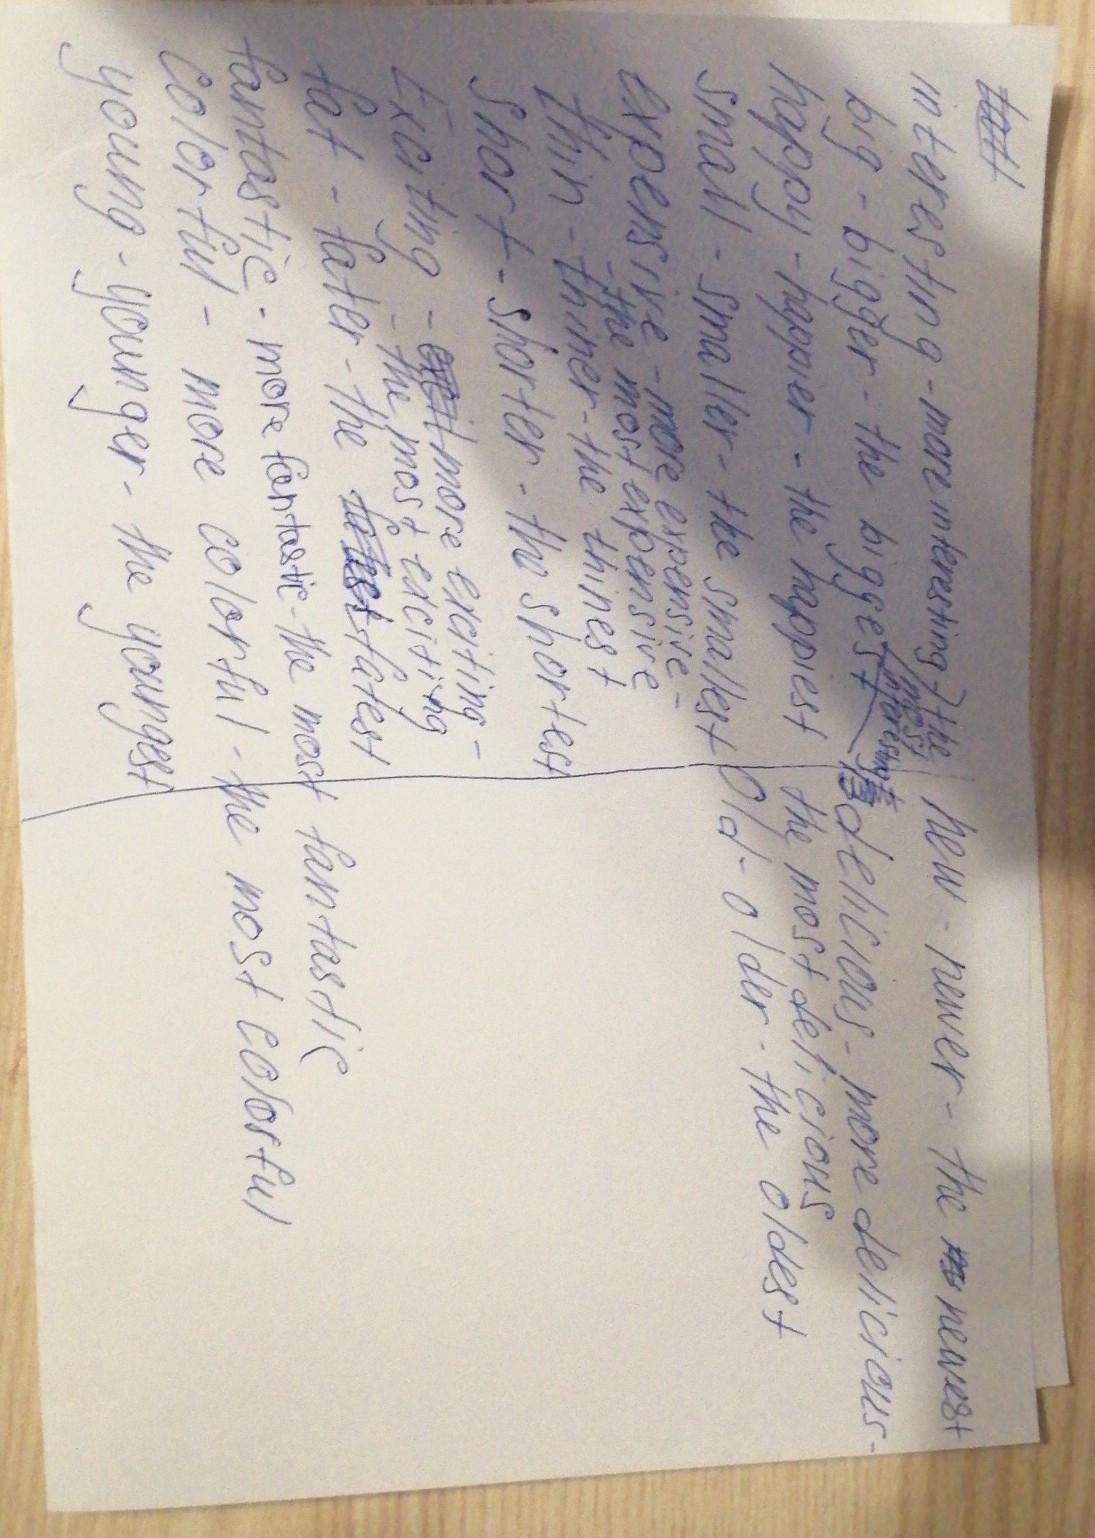 interesting - more interesting - the most interesting
big - bigger - the biggest
happy - happier - the happiest
small - smaller - the smallest
expensive - more expensive -
- the most expensive
thin - thiner - the thinest
Short - shorter - the shortest
Exciting - more exciting -
- the most exciting
fat - fater - the fatest
fantastic - more fantastic - the most fantastic
Colorful - more colorful - the most colorful
young - younger - the youngest
new - newer - the newest
delicious - more delicious -
the most delicious
Old - older - the oldest